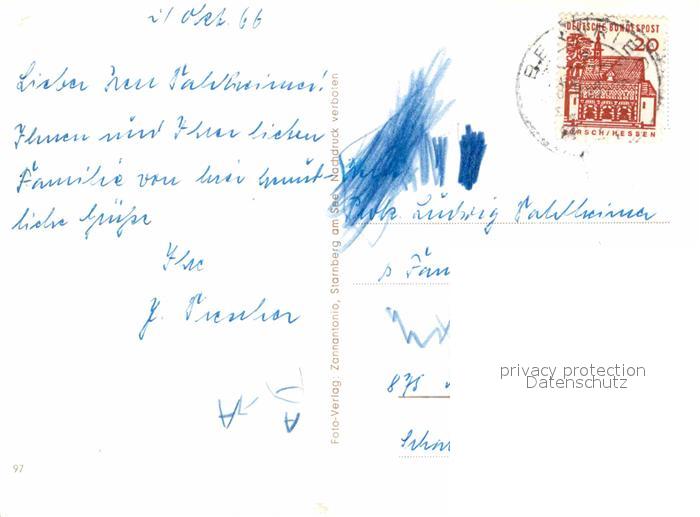 21 Okt. 66
Lieber Herr Pahlheimer!
Ihnen und Ihrer lieben
Familie von hier gemüt-
liche Grüße
Ihr
J.
Foto-Verlag: Zannantonio, Starnberg am See, Nachdruck verboten
97
DEUTSCHE BUNDESPOST
20
LORSCH/HESSEN
Herrn
Ludwig Pahlheimer
Fam
privacy protection
Datenschutz